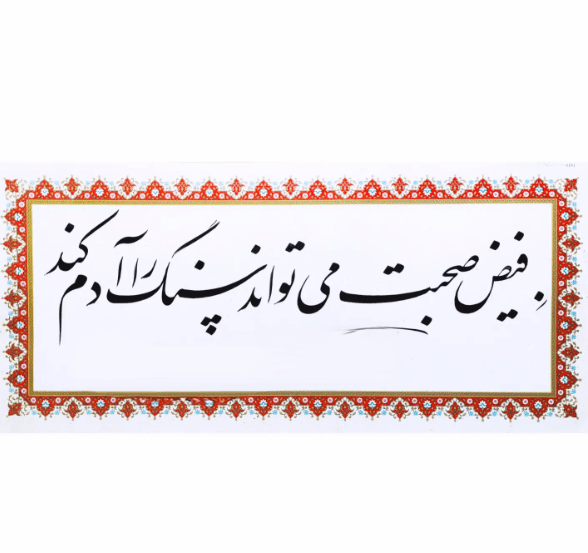 فیض صحبت می تواند سنگ را آدم کند